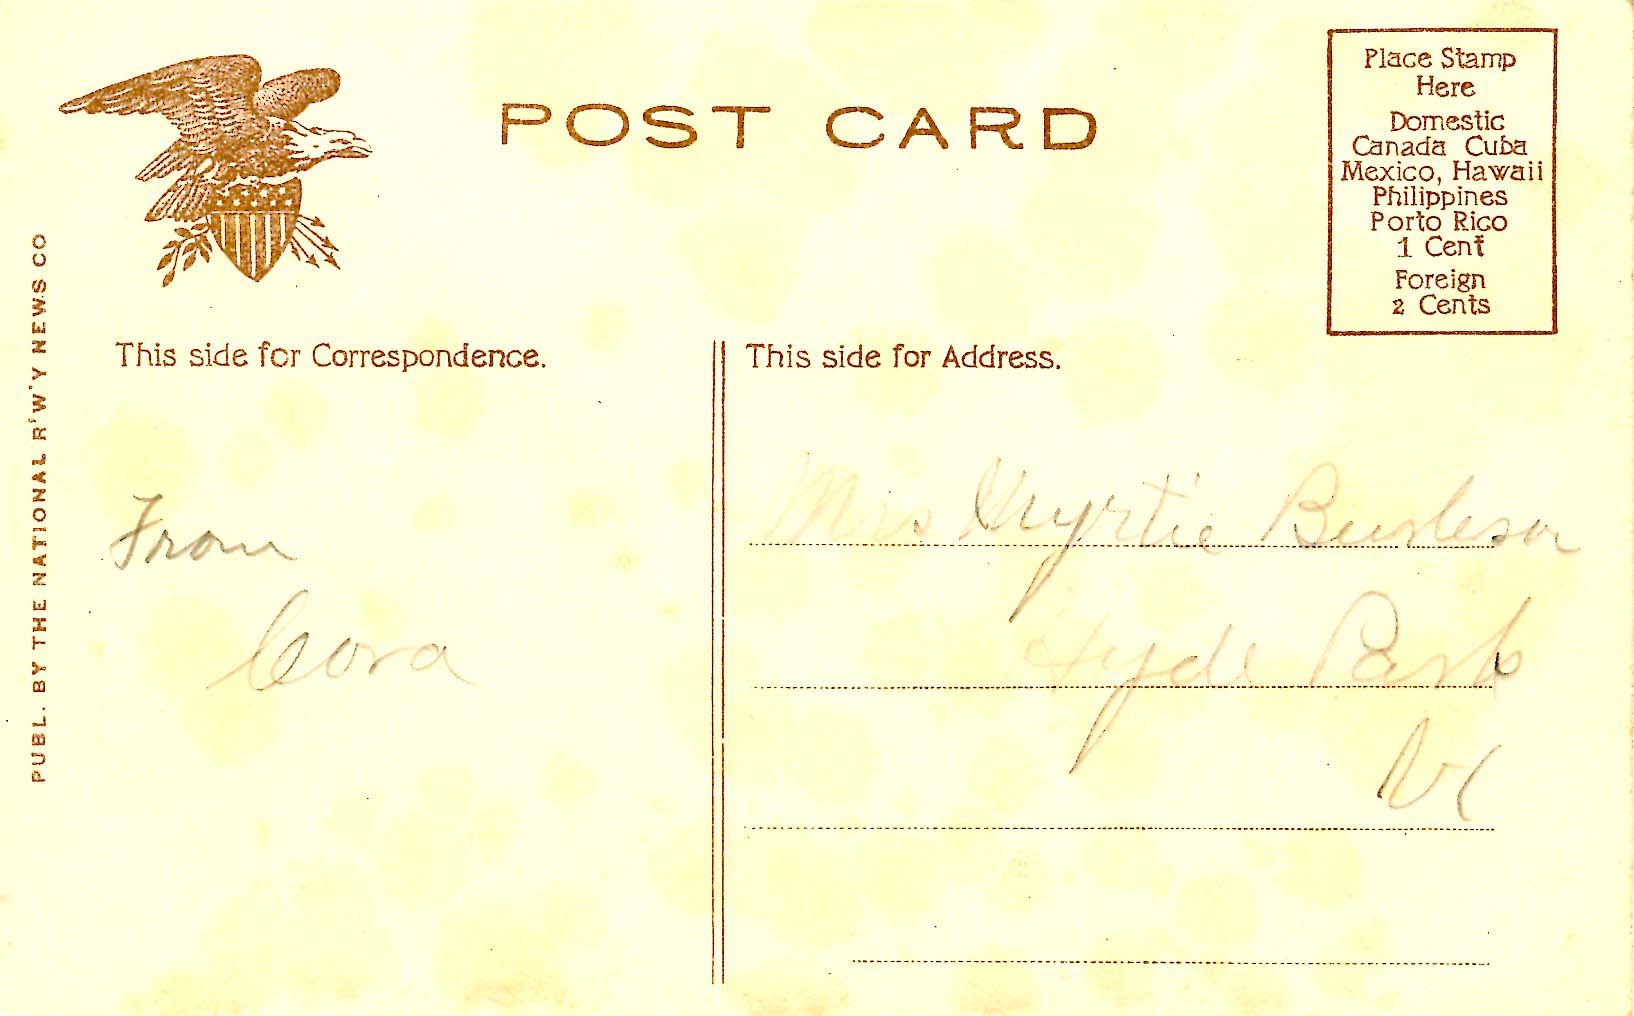 POST CARD
Place Stamp
Here
Domestic
Canada Cuba
Mexico, Hawaii
Philippines
Porto Rico
1 Cent
Foreign
2 Cents
PUBL. BY THE NATIONAL R'W'Y NEWS CO
This side for Correspondence.
From
Cora
This side for Address.
Mrs Myrtie Burleson
Hyde Park